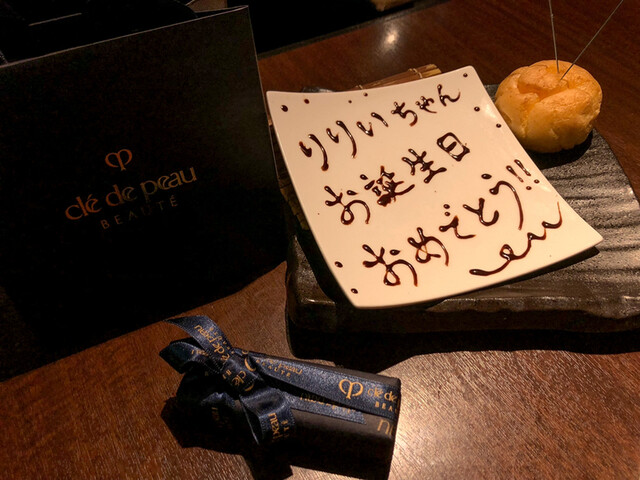 clé de peau
BEAUTÉ
りりいちゃん
お誕生日
おめでとう!!
clé de